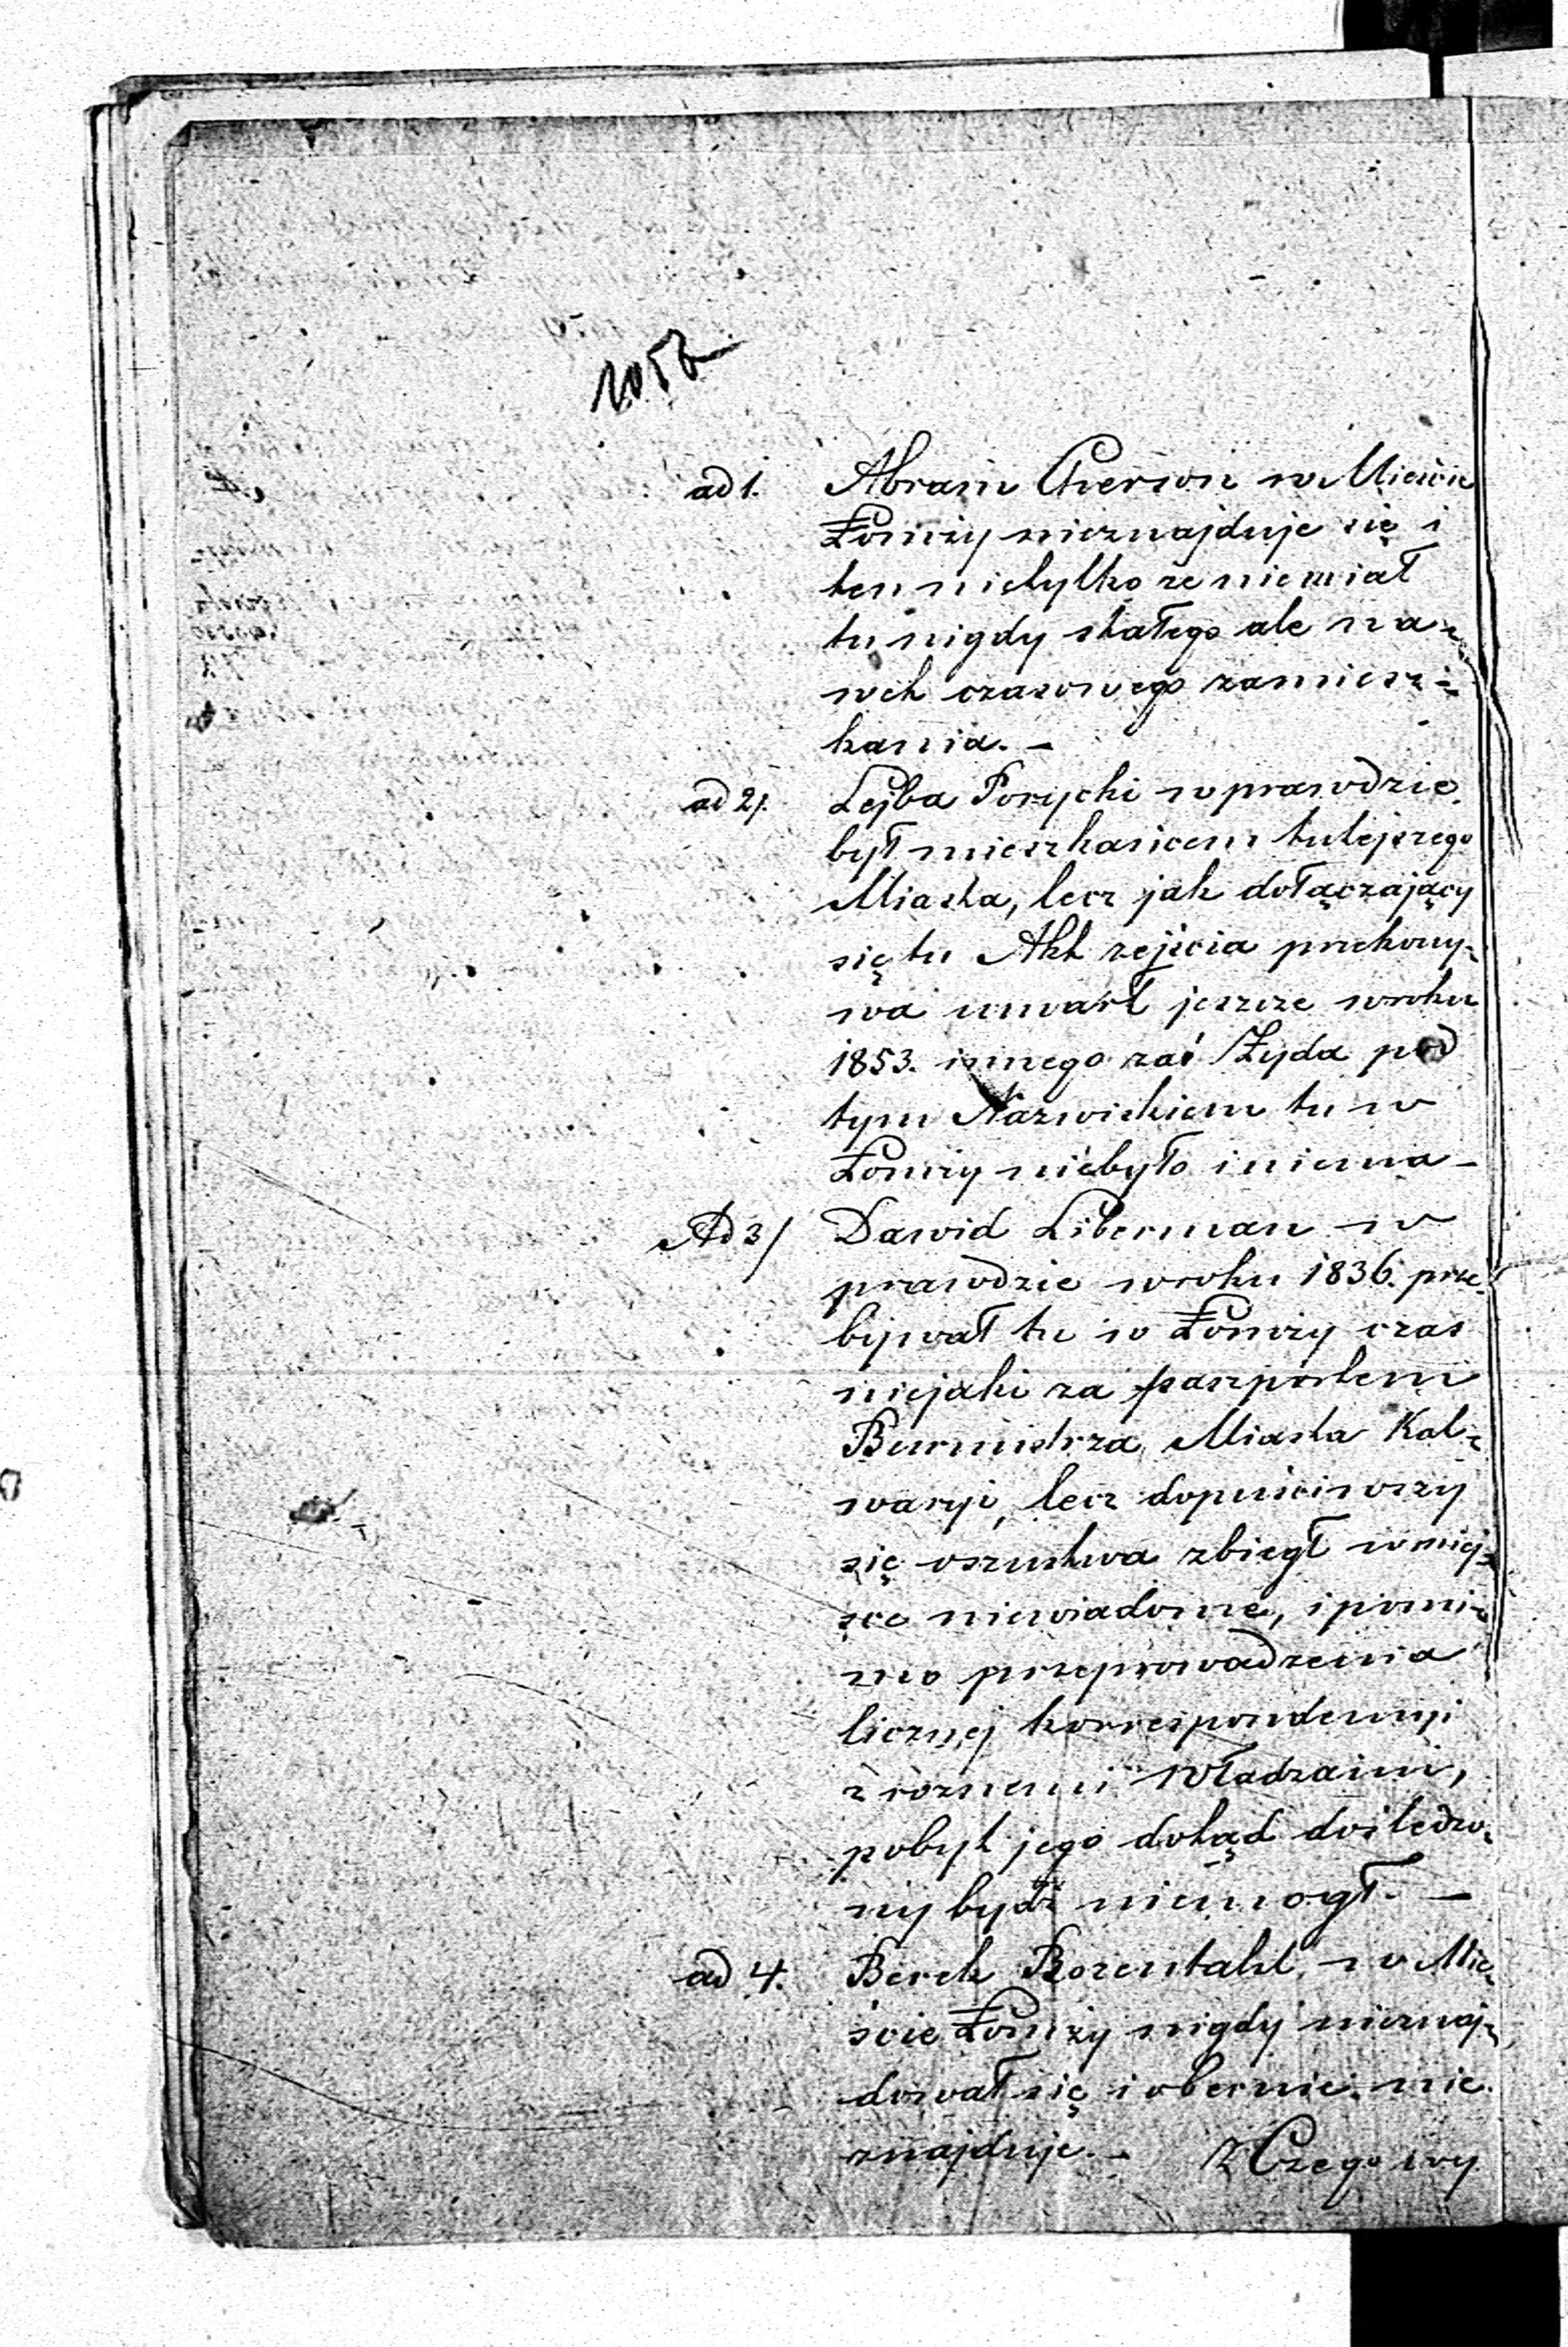 105b
ad 1. Abram Gierson w Mieście
Łomży nieznajduje się i
ten nietylko że niemiał
tu nigdy stałego ale na-
wet czasowego zamiesz-
kania. -
ad 2/. Lejba Porycki wprawdzie
był mieszkańcem tutejszego
Miasta, lecz jak dołączający
się tu Akt zejścia przekony-
wa umarł jeszcze wroku
1853. innego zaś Żyda pod
tym Nazwiskiem tu w
Łomży niebyło i niema -
Ad 3/ Dawid Liberman w
prawdzie wroku 1836. prze-
bywał tu w Łomży czas
niejaki za paszportem
Burmistrza Miasta Kal-
waryi, lecz dopuściwszy
się oszustwa zbiegł wmiej-
sce niewiadome, i pomi-
mo przeprowadzenia
licznej korrespondencyi
z rożnemi Władzami,
pobyt jego dotąd dośledzo-
ny bydź niemogł. -
ad 4. Berek Rozentahl w Mie-
ście Łomży nigdy nieznaj-
dował się i obecnie nie
znajduje. - Z Czego wy